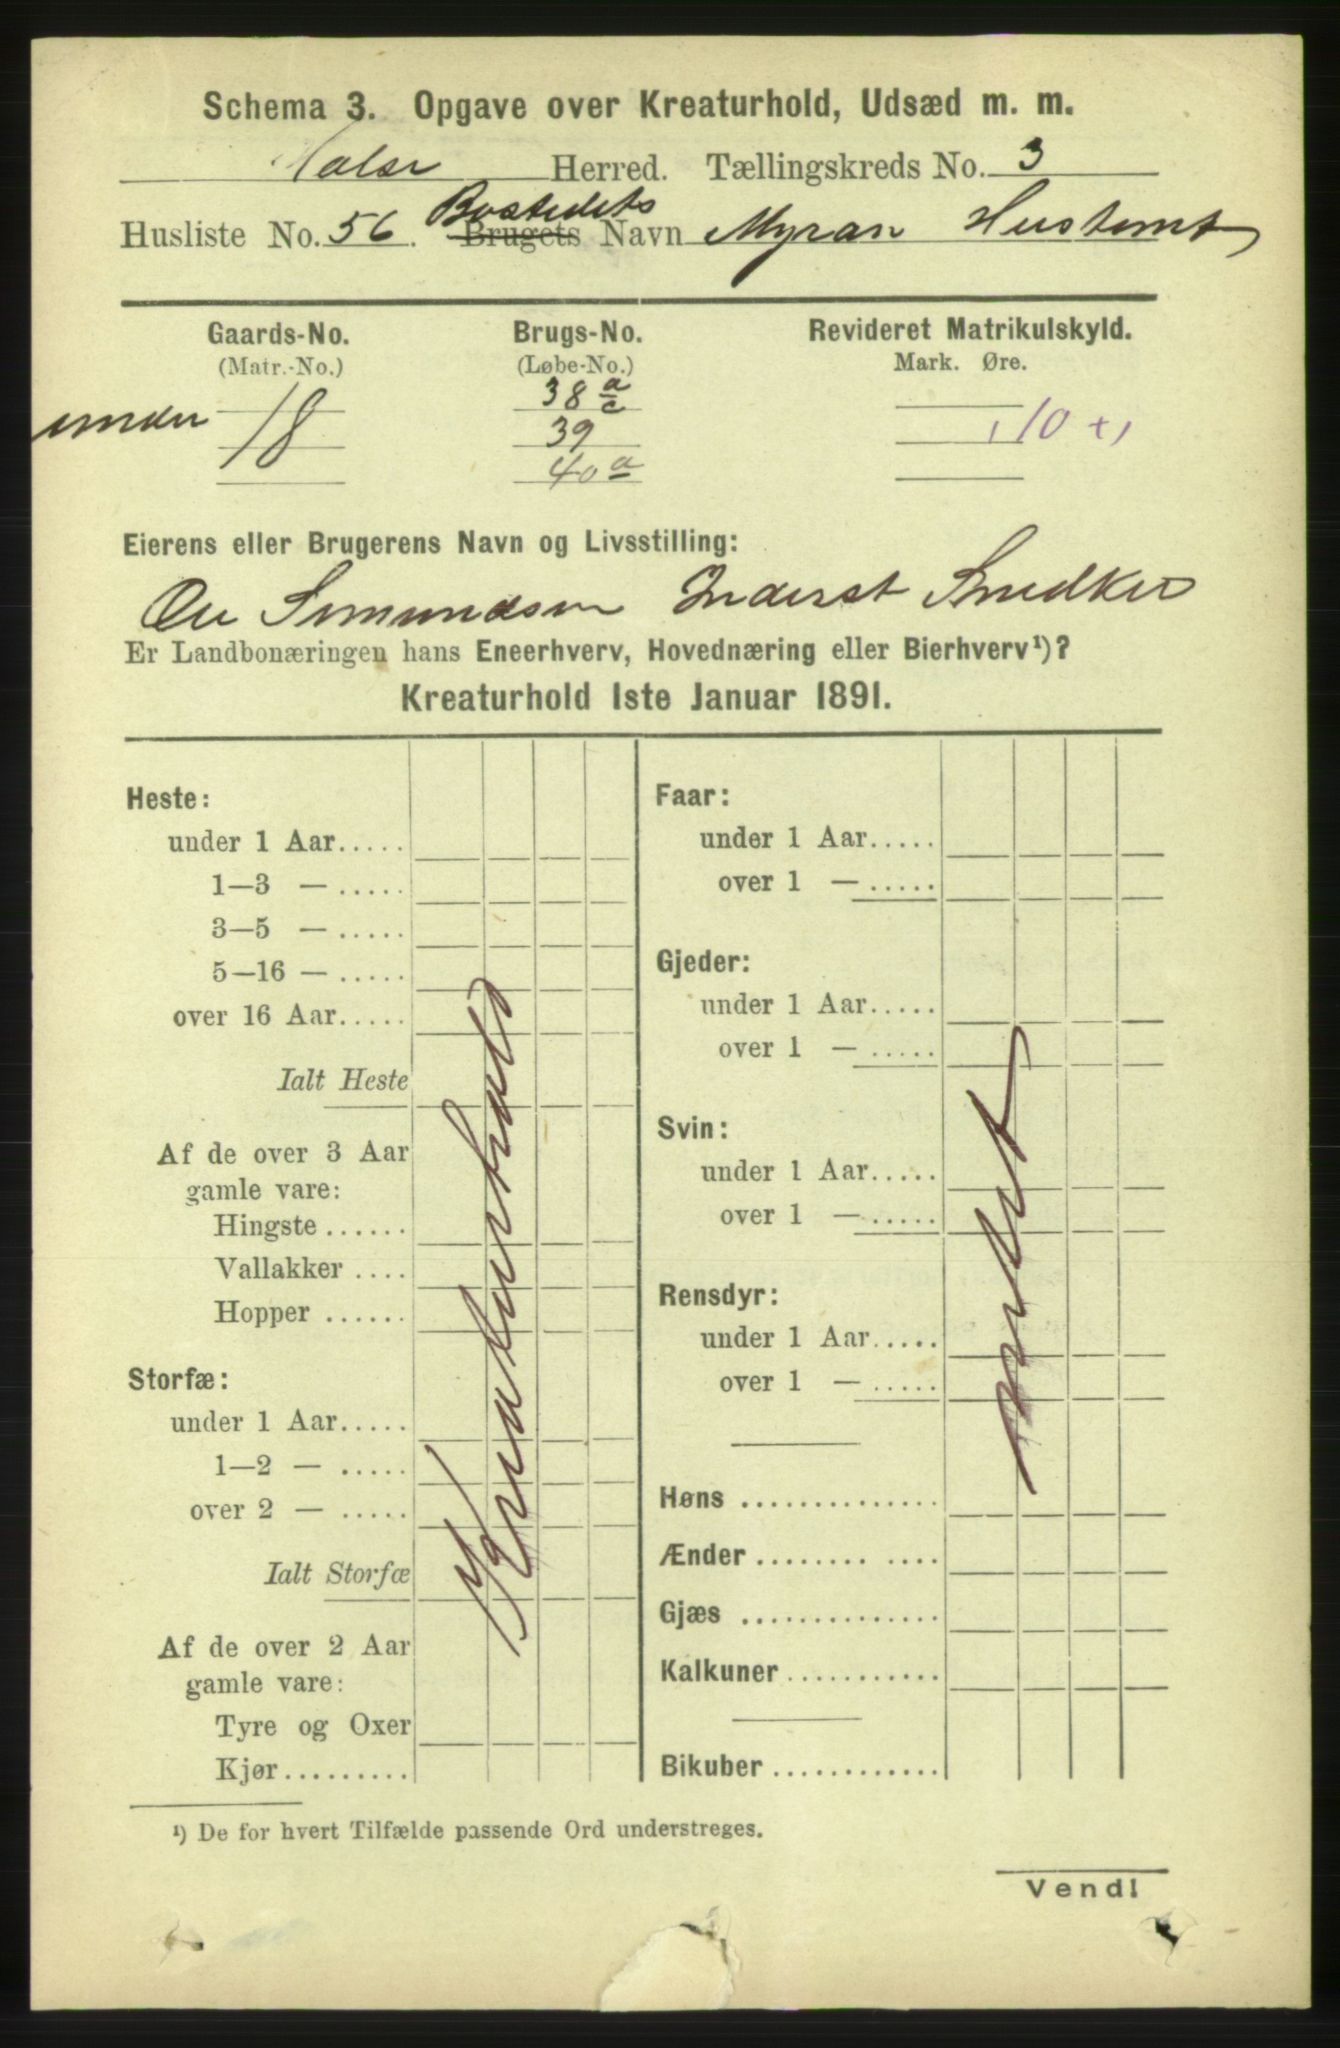 Schema 3. Opgave over Kreaturhold, Udsæd m. m.
Herred. Tællingskreds No. 3
Husliste No. 56. Bostedets Brugets Navn Myran Hustomt
Gaards-No. Brugs-No. Revideret Matrikulskyld.
(Matr.-No.) (Løbe-No.) Mark. Øre.
under 18 38 a/c
39 10 +
40 a
Eierens eller Brugerens Navn og Livsstilling:
Ole Simundsen Inderst Snedker
Er Landbonæringen hans Eneerhverv, Hovednæring eller Bierhverv¹)?
Kreaturhold 1ste Januar 1891.
Heste:
under 1 Aar.....
1—3 — .....
3—5 — .....
5—16 — .....
over 16 Aar.....
Ialt Heste
Af de over 3 Aar
gamle vare:
Hingste ......
Vallakker ....
Hopper ......
Storfæ:
under 1 Aar.....
1—2 — .....
over 2 — .....
Ialt Storfæ
Af de over 2 Aar
gamle vare:
Tyre og Oxer
Kjør.........
Kreaturhold
Faar:
under 1 Aar.....
over 1 — .....
Gjeder:
under 1 Aar.....
over 1 — .....
Svin:
under 1 Aar.....
over 1 — .....
Rensdyr:
under 1 Aar.....
over 1 — .....
Høns ..............
Ænder ........ ....
Gjæs ..............
Kalkuner ...........
Bikuber .............
intet
¹) De for hvert Tilfælde passende Ord understreges.
Vend!